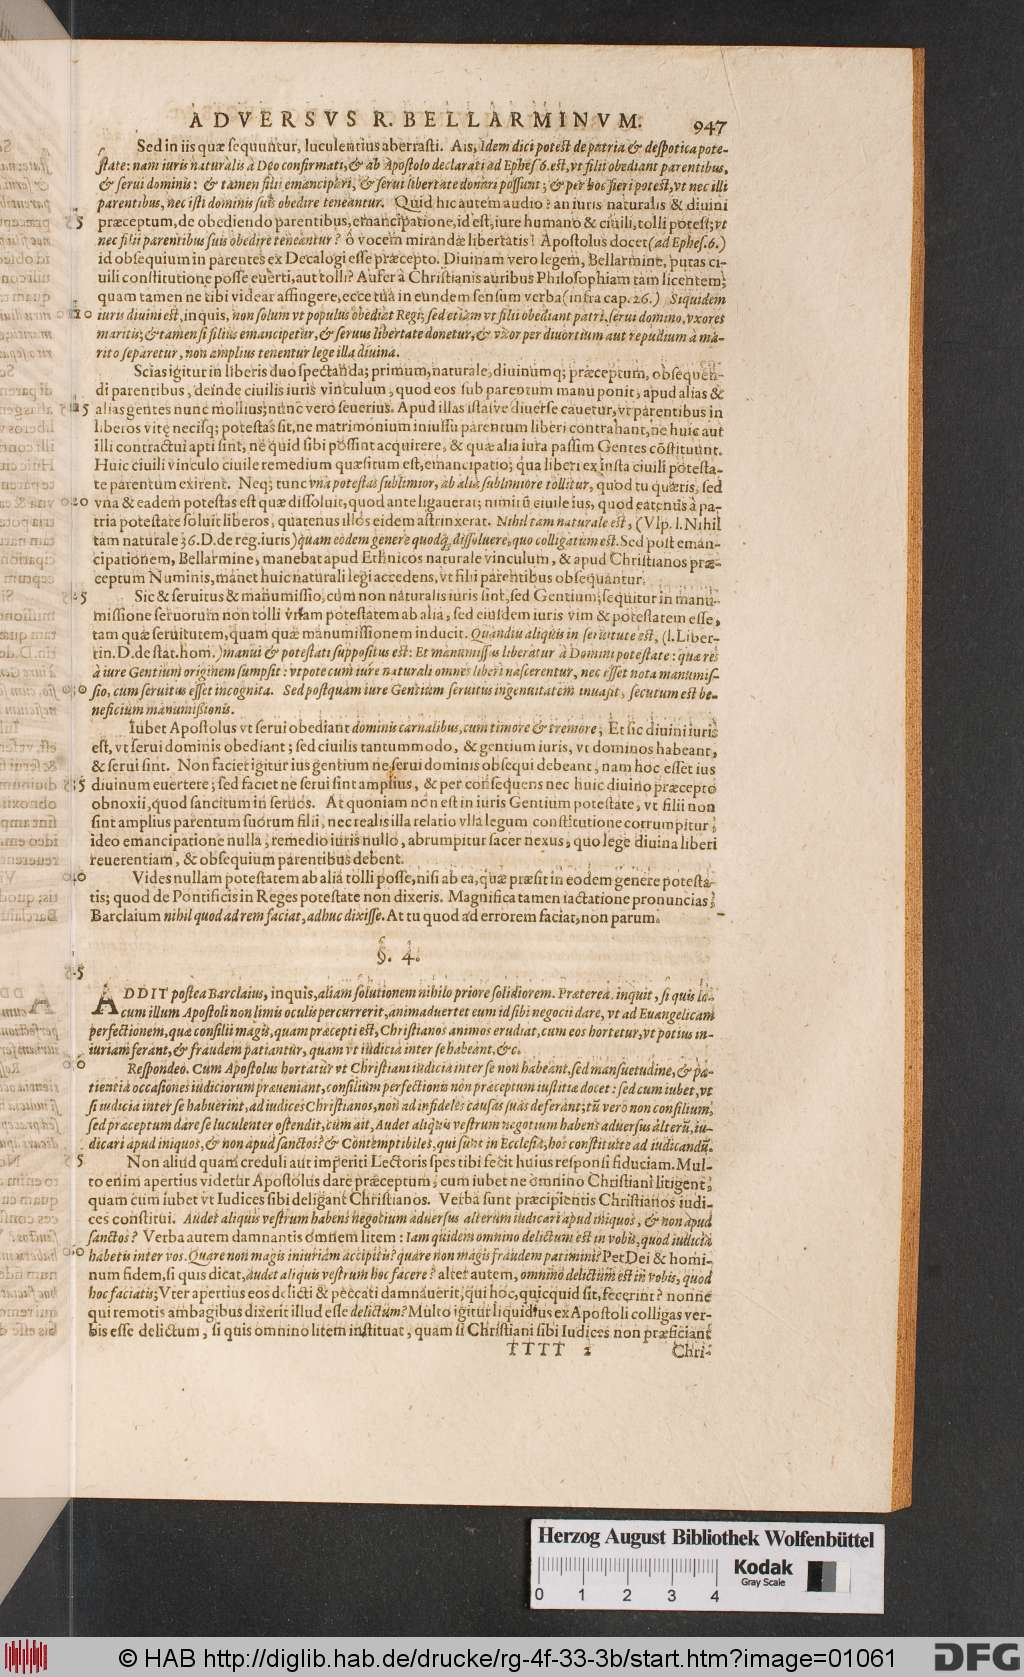 ADVERSVS R. BELLARMINVM. 947
Sed in iis quæ sequuntur, luculentius aberrasti. Ais, Idem dici potest de patria & despotica pote-
state: nam iuris naturalis à Deo confirmati, & ab Apostolo declarati ad Ephes 6. est, vt filii obediant parentibus,
& serui dominis: & tamen filii emancipari, & serui libertate donari possunt; & per hoc fieri potest, vt nec illi
parentibus, nec isti dominis suis obedire teneantur. Quid hic autem audio? an iuris naturalis & diuini
5 præceptum, de obediendo parentibus, emancipatione, id est, iure humano & ciuili, tolli potest; vt
nec filii parentibus suis obedire teneantur? ô vocem mirandæ libertatis! Apostolus docet (ad Ephes. 6.)
id obsequium in parentes ex Decalogi esse præcepto. Diuinam vero legem, Bellarmine, putas ci-
uili constitutione posse euerti, aut tolli? Aufer à Christianis auribus Philosophiam tam licentem;
quam tamen ne tibi videar affingere, ecce tua in eundem sensum verba (infra cap. 26.) Siquidem
10 iuris diuini est, inquis, non solum vt populus obediat Regi, sed etiam vt filii obediant patri, serui domino, vxores
maritis; & tamen si filius emancipetur, & seruus libertate donetur, & vxor per diuortium aut repudium à ma-
rito separetur, non amplius tenentur lege illa diuina.
Scias igitur in liberis duo spectanda; primum, naturale, diuinumq; præceptum, obsequen-
di parentibus, deinde ciuilis iuris vinculum, quod eos sub parentum manu ponit, apud alias &
15 alias gentes nunc mollius; nunc vero seuerius. Apud illas istasve diuerse cauetur, vt parentibus in
liberos vitę necisq; potestas sit, ne matrimonium iniussu parentum liberi contrahant, ne huic aut
illi contractui apti sint, ne quid sibi possint acquirere, & quæ alia iura passim Gentes cõstituunt.
Huic ciuili vinculo ciuile remedium quæsitum est, emancipatio; qua liberi ex iusta ciuili potesta-
te parentum exirent. Neq; tunc vna potestas sublimior, ab alia sublimiore tollitur, quod tu quæris, sed
20 vna & eadem potestas est quæ dissoluit, quod ante ligauerat; nimirũ ciuile ius, quod eatenus à pa-
tria potestate soluit liberos, quatenus illos eidem astrinxerat. Nihil tam naturale est, (Vlp. l. Nihil
tam naturale 36. D. de reg. iuris) quam eodem genere quodq; dissoluere, quo colligatum est. Sed post eman-
cipationem, Bellarmine, manebat apud Ethnicos naturale vinculum, & apud Christianos præ-
ceptum Numinis, manet huic naturali legi accedens, vt filii parentibus obsequantur.
25 Sic & seruitus & manumissio, cùm non naturalis iuris sint, sed Gentium; sequitur in manu-
missione seruorum non tolli vnam potestatem ab alia, sed eiusdem iuris vim & potestatem esse,
tam quæ seruitutem, quam quæ manumissionem inducit. Quandiu aliquis in seruitute est, (l. Liber-
tin. D. de stat. hom.) manui & potestati suppositus est: Et manumissus liberatur à Domini potestate: quæ res
à iure Gentium originem sumpsit: vtpote cum iure naturali omnes liberi nascerentur, nec esset nota manumis-
30 sio, cum seruitus esset incognita. Sed postquam iure Gentium seruitus ingenuitatem inuasit, secutum est be-
neficium manumissionis.
Iubet Apostolus vt serui obediant dominis carnalibus, cum timore & tremore; Et sic diuini iuris
est, vt serui dominis obediant; sed ciuilis tantummodo, & gentium iuris, vt dominos habeant,
& serui sint. Non faciet igitur ius gentium ne serui dominis obsequi debeant, nam hoc esset ius
35 diuinum euertere; sed faciet ne serui sint amplius, & per consequens nec huic diuino præcepto
obnoxii, quod sancitum in seruos. At quoniam non est in iuris Gentium potestate, vt filii non
sint amplius parentum suorum filii, nec realis illa relatio vlla legum constitutione corrumpitur;
ideo emancipatione nulla, remedio iuris nullo, abrumpitur sacer nexus, quo lege diuina liberi
reuerentiam, & obsequium parentibus debent.
40 Vides nullam potestatem ab alia tolli posse, nisi ab ea, quæ præsit in eodem genere potesta-
tis; quod de Pontificis in Reges potestate non dixeris. Magnifica tamen iactatione pronuncias;
Barclaium nihil quod ad rem faciat, adhuc dixisse. At tu quod ad errorem faciat, non parum.
§. 4.
ADDIT postea Barclaius, inquis, aliam solutionem nihilo priore solidiorem. Præterea inquit, si quis lo-
cum illum Apostoli non limis oculis percurrerit, animaduertet eum id sibi negocii dare, vt ad Euangelicam
perfectionem, quæ consilii magis, quam præcepti est, Christianos animos erudiat, cum eos hortetur, vt potius in-
iuriam ferant, & fraudem patiantur, quam vt iudicia inter se habeant, &c.
Respondeo. Cum Apostolus hortatur vt Christiani iudicia inter se non habeant, sed mansuetudine, & pa-
tientia occasiones iudiciorum præueniant, consilium perfectionis non præceptum iustitiæ docet: sed cum iubet, vt
si iudicia inter se habuerint, ad iudices Christianos, non ad infideles causas suas deferant; tũ vero non consilium,
sed præceptum dare se luculenter ostendit, cùm ait, Audet aliquis vestrum negotium habens aduersus alterũ, iu-
dicari apud iniquos, & non apud sanctos? & Contemptibiles, qui sunt in Ecclesia, hos constituite ad iudicandũ.
Non aliud quam creduli aut imperiti Lectoris spes tibi fecit huius responsi fiduciam. Mul-
to enim apertius videtur Apostolus dare præceptum, cum iubet ne omnino Christiani litigent,
quam cum iubet vt Iudices sibi deligant Christianos. Verba sunt præcipientis Christianos iudi-
ces constitui. Audet aliquis vestrum habens negotium aduersus alterum iudicari apud iniquos, & non apud
sanctos? Verba autem damnantis omnem litem: Iam quidem omnino delictum est in vobis, quod iudicia
habetis inter vos. Quare non magis iniuriam accipitis? quare non magis fraudem patimini? Per Dei & homi-
num fidem, si quis dicat, audet aliquis vestrum hoc facere? alter autem, omnino delictum est in vobis, quod
hoc faciatis; Vter apertius eos delicti & peccati damnauerit, qui hoc, quicquid sit, fecerint? nonne
qui remotis ambagibus dixerit illud esse delictum? Multo igitur liquidius ex Apostoli colligas ver-
bis esse delictum, si quis omnino litem instituat, quam si Christiani sibi Iudices non præficiant
TTTT 2 Chri-
Herzog August Bibliothek Wolfenbüttel
Kodak
Gray Scale
0 1 2 3 4
© HAB http://diglib.hab.de/drucke/rg-4f-33-3b/start.htm?image=01061
DFG